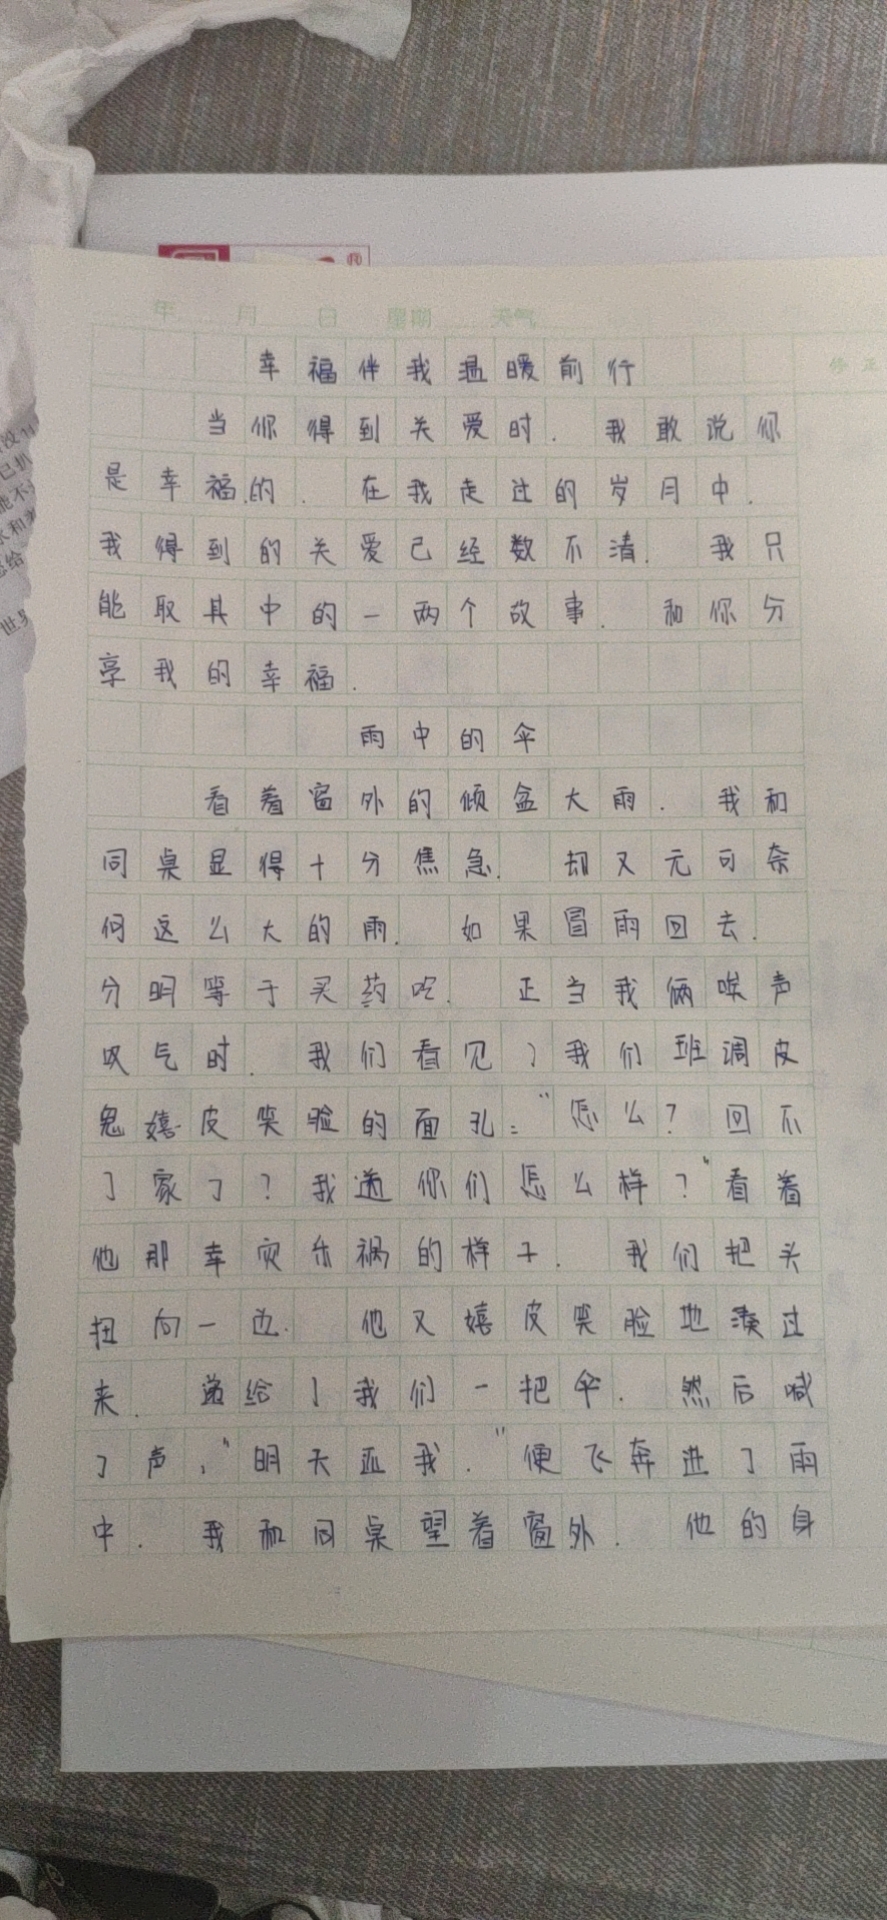 年 月 日 星期 天气
修正
幸福伴我温暖前行
当你得到关爱时.我敢说你
是幸福的.在我走过的岁月中.
我得到的关爱已经数不清.我只
能取其中的一两个故事.和你分
享我的幸福.
雨中的伞
看着窗外的倾盆大雨.我和
同桌显得十分焦急.却又无可奈
何这么大的雨.如果冒雨回去.
分明等于买药吃.正当我俩唉声
叹气时.我们看见了我们班调皮
鬼嬉皮笑脸的面孔:“怎么?回不
了家了?我送你们怎么样?”看着
他那幸灾乐祸的样子.我们把头
扭向一边.他又嬉皮笑脸地凑过
来.递给了我们一把伞.然后喊
了声,“明天还我.”便飞奔进了雨
中.我和同桌望着窗外.他的身